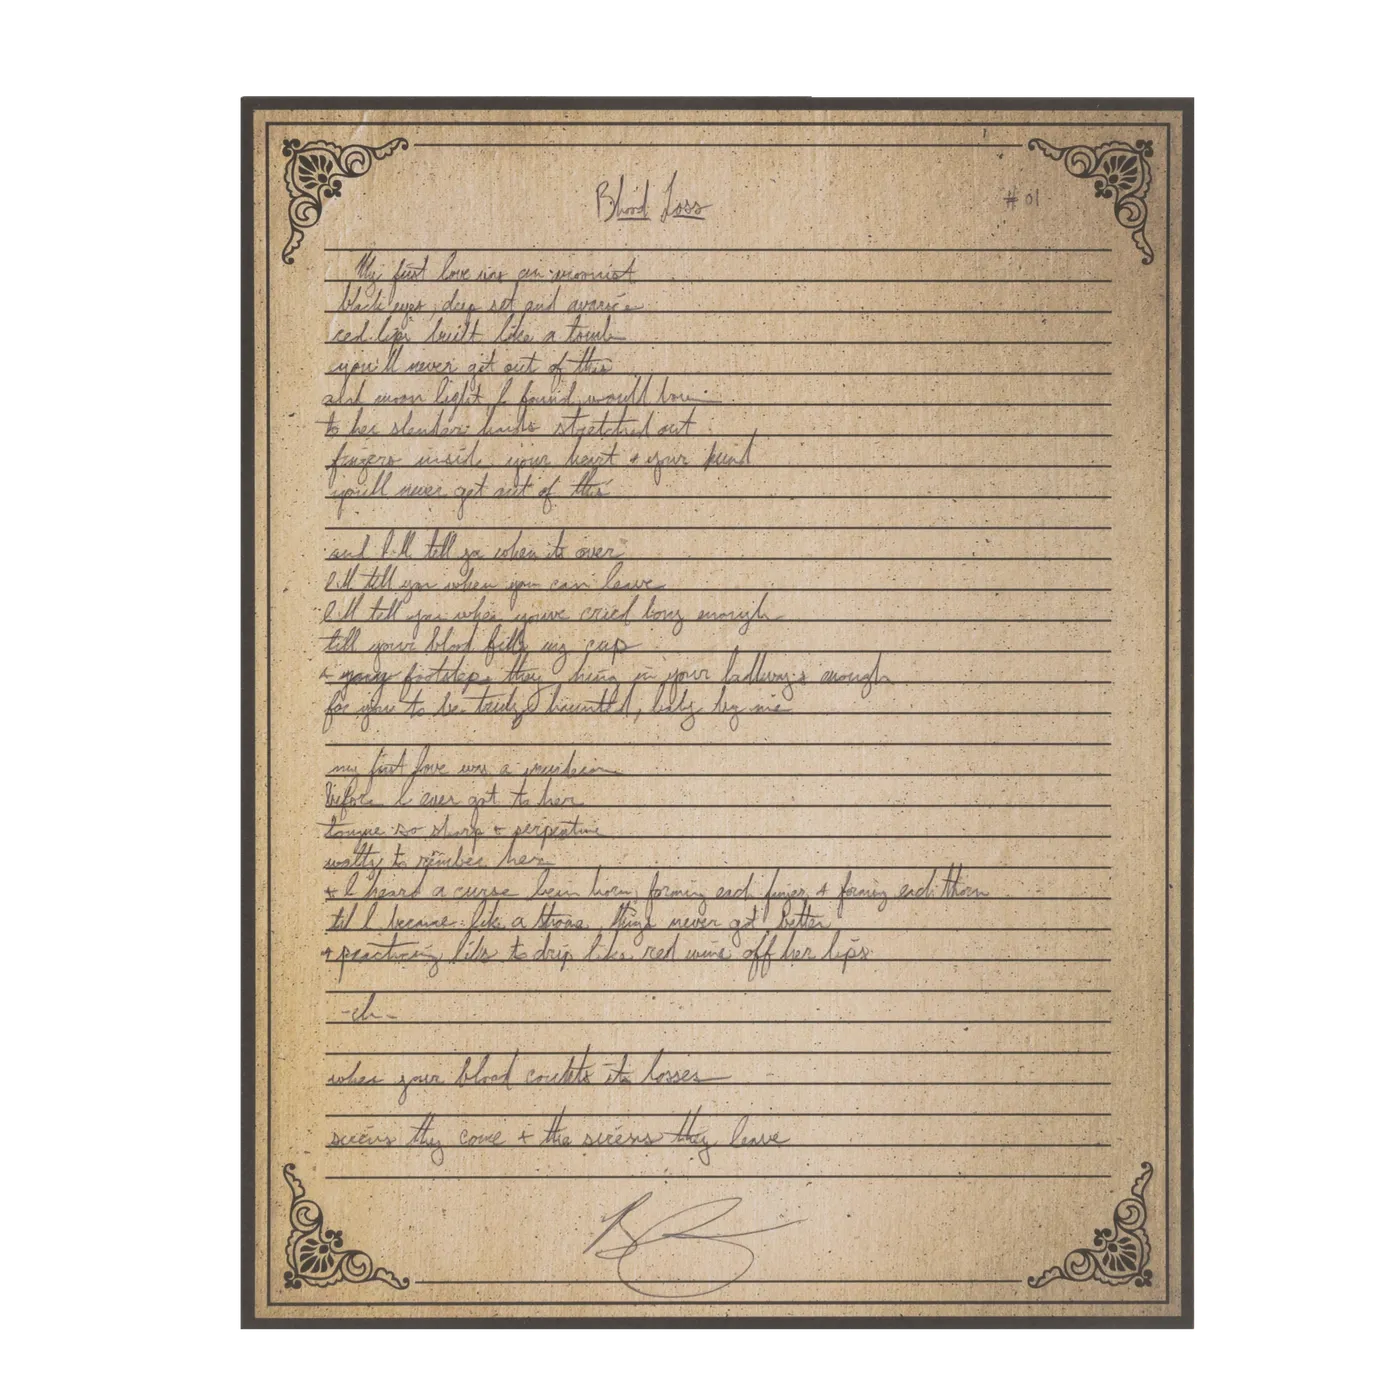 Blood Loss
# 01
My first love was an
black eyes, deep set and
red lips built like a tomb
you'll never get out of this
and moon light I found would
to her slender hands stretched out
fingers inside your heart + your
you'll never get out of this
and I'll tell ya when its over
I'll tell you when you can leave
I'll tell you when youve cried long enough
till your blood fills my cup
+ footsteps they hung in your hallways enough
for you to be truly haunted, baby by me
my first love was a
Before I ever got to her
tongue so sharp + serpentine
waltz to her
+ I heard a curse been born, forming each finger + forming each thorn
til I became like a things never got better
+ practicing to drip like red wine off her lips
-ch-
when your blood counts its losses
sirens they come + the sirens they leave